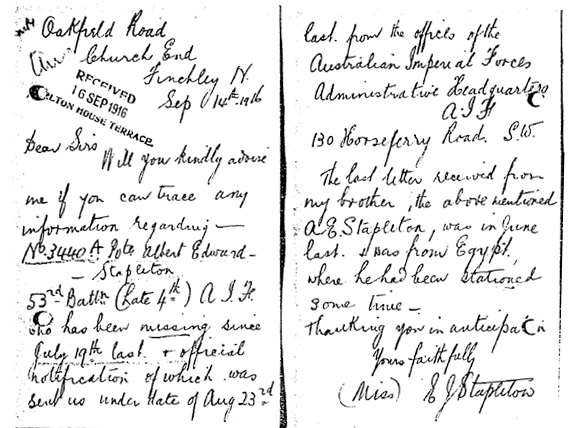 Oakfield Road
Church End
Finchley N.
RECEIVED
16 SEP 1916
CARLTON HOUSE TERRACE.
Sep 14th 1916
Dear Sirs
Will you kindly advise
me if you can trace any
information regarding —
No. 3440 A Pte Albert Edward —
— Stapleton
53rd Battn (Late 4th) A.I.F.
who has been missing since
July 19th last. + official
notification of which was
sent us under date of Aug 23rd
last. from the offices of the
Australian Imperial Forces
Administrative Headquarters
A.I.F
130 Horseferry Road. S.W.
The last letter received from
my brother, the above mentioned
A.E. Stapleton, was in June
last. & was from Egypt,
where he had been stationed
some time —
Thanking you in anticipation
Yours faithfully
(Miss) E J Stapleton